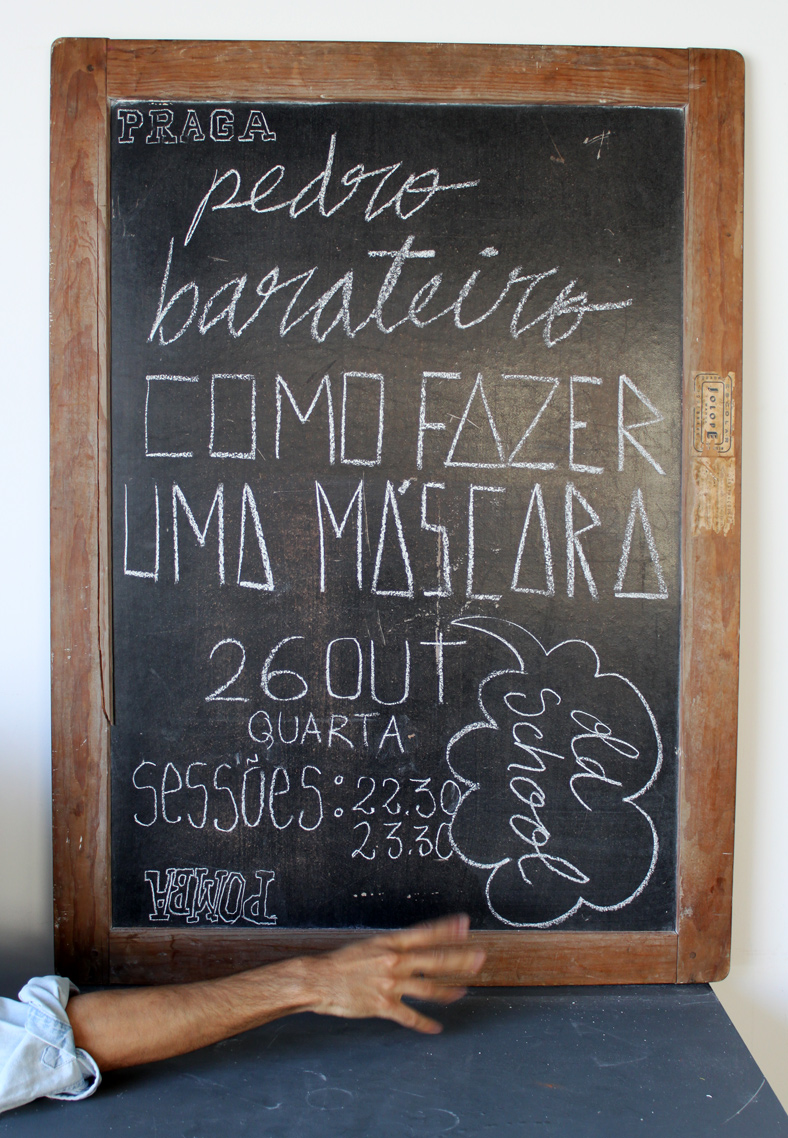 PRAGA
pedro
barateiro
COMO FAZER
UMA MÁSCARA
26 OUT
QUARTA
sessões: 22.30
23.30
old
school
POMBA